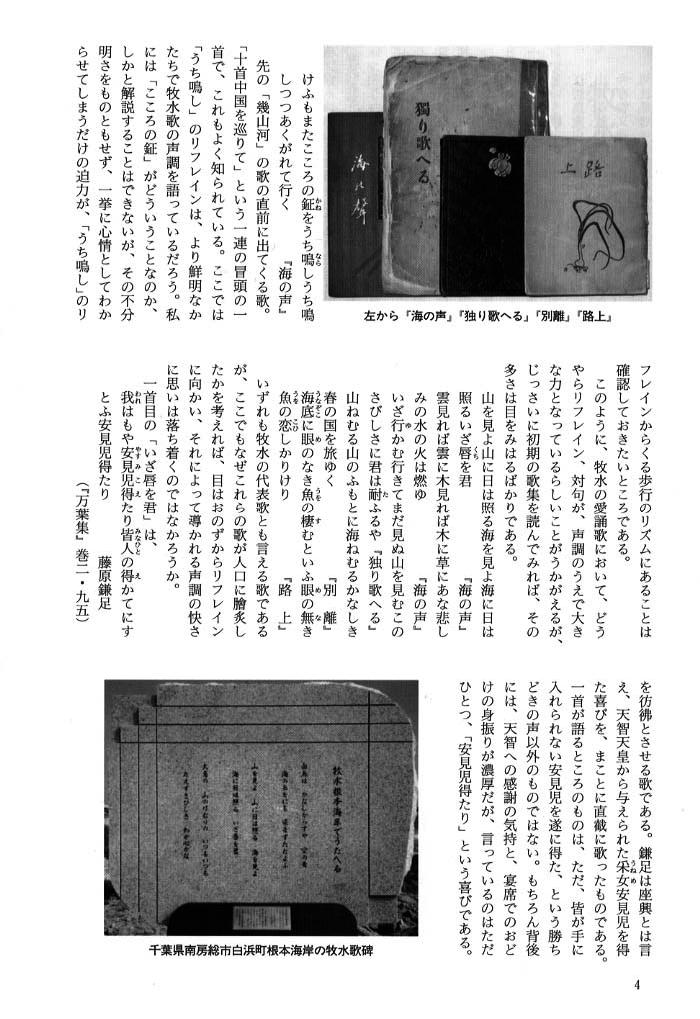 けふもまたこころの鉦をうち鳴しうち鳴
しつつあくがれて行く　『海の声』
先の「幾山河」の歌の直前に出てくる歌。
「十首中国を巡りて」という一連の冒頭の一
首で、これもよく知られている。ここでは
「うち鳴し」のリフレインは、より鮮明なか
たちで牧水歌の声調を語っているだろう。私
には「こころの鉦」がどういうことなのか、
しかと解説することはできないが、その不分
明さをものともせず、一挙に心情としてわか
らせてしまうだけの迫力が、「うち鳴し」のリ
海の聲
獨り歌へる
路上
左から『海の声』『独り歌へる』『別離』『路上』
フレインからくる歩行のリズムにあることは
確認しておきたいところである。
このように、牧水の愛誦歌において、どう
やらリフレイン、対句が、声調のうえで大き
な力となっているらしいことがうかがえるが、
じっさいに初期の歌集を読んでみれば、その
多さは目をみはるばかりである。
山を見よ山に日は照る海を見よ海に日は
照るいざ唇を君　『海の声』
雲見れば雲に木見れば木に草にあな悲し
みの水の火は燃ゆ　『海の声』
いざ行かむ行きてまだ見ぬ山を見むこの
さびしさに君は耐ふるや『独り歌へる』
山ねむる山のふもとに海ねむるかなしき
春の国を旅ゆく　『別　離』
海底に眼のなき魚の棲むといふ眼の無き
魚の恋しかりけり　『路　上』
いずれも牧水の代表歌とも言える歌である
が、ここでもなぜこれらの歌が人口に膾炙し
たかを考えれば、目はおのずからリフレイン
に向かい、それによって導かれる声調の快さ
に思いは落ち着くのではなかろうか。
一首目の「いざ唇を君」は、
我はもや安見児得たり皆人の得かてにす
とふ安見児得たり　藤原鎌足
（『万葉集』巻二・九五）
を彷彿とさせる歌である。鎌足は座興とは言
え、天智天皇から与えられた采女安見児を得
た喜びを、まことに直截に歌ったものである。
一首が語るところのものは、ただ、皆が手に
入れられない安見児を遂に得た、という勝ち
どきの声以外のものではない。もちろん背後
には、天智への感謝の気持と、宴席でのおど
けの身振りが濃厚だが、言っているのはただ
ひとつ、「安見児得たり」という喜びである。
牧水根本海岸でうたへる
山を見よ　山に日は照る　海を見よ
海に日は照る　いざ唇を君
千葉県南房総市白浜町根本海岸の牧水歌碑
4